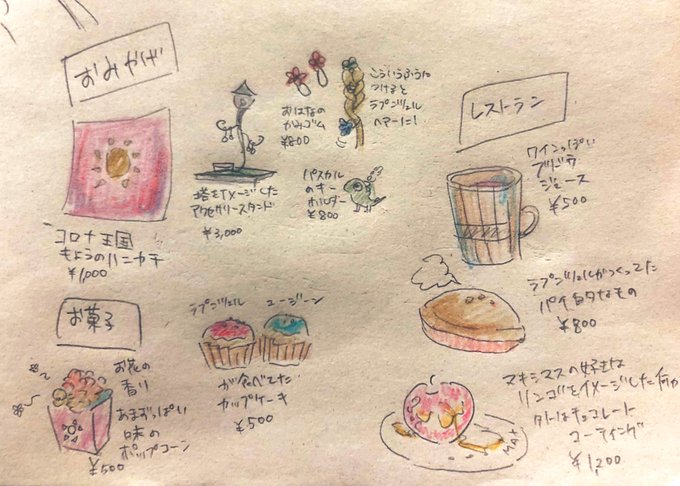 おみやげ
コロナ王国
もようのハンカチ
¥1,000
塔をイメージした
アクセサリースタンド
¥3,000
おはなの
かみゴム
¥800
こういうふうに
つけると
ラプンツェル
ヘアーに!
パスカル
のキー
ホルダー
¥800
レストラン
ワインっぽい
ブドウ
ジュース
¥500
ラプンツェルがつくってた
パイ的なもの
¥800
マキシマスの好きな
リンゴをイメージした何か
外はチョコレート
コーティング
¥1,200
MAX
お菓子
お花の
香り
あまずっぱい
味の
ポップコーン
¥500
ラプンツェル
ユージーン
が食べてた
カップケーキ
¥500